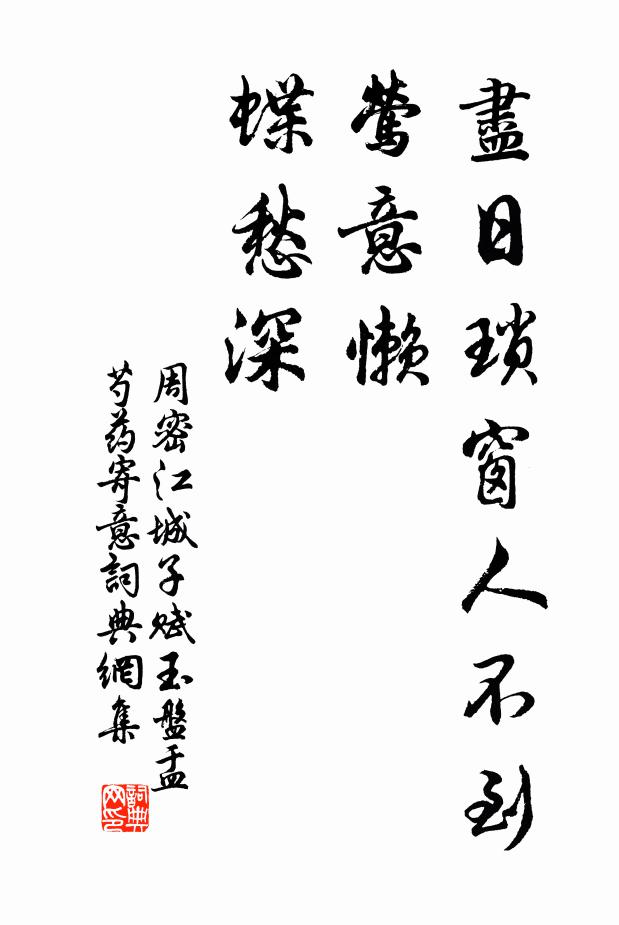 盡日瑣窗人不到
鶯意懶
蝶愁深
周密江城子赋玉盤盂
芍药寄意詞典網集
詞典
网印